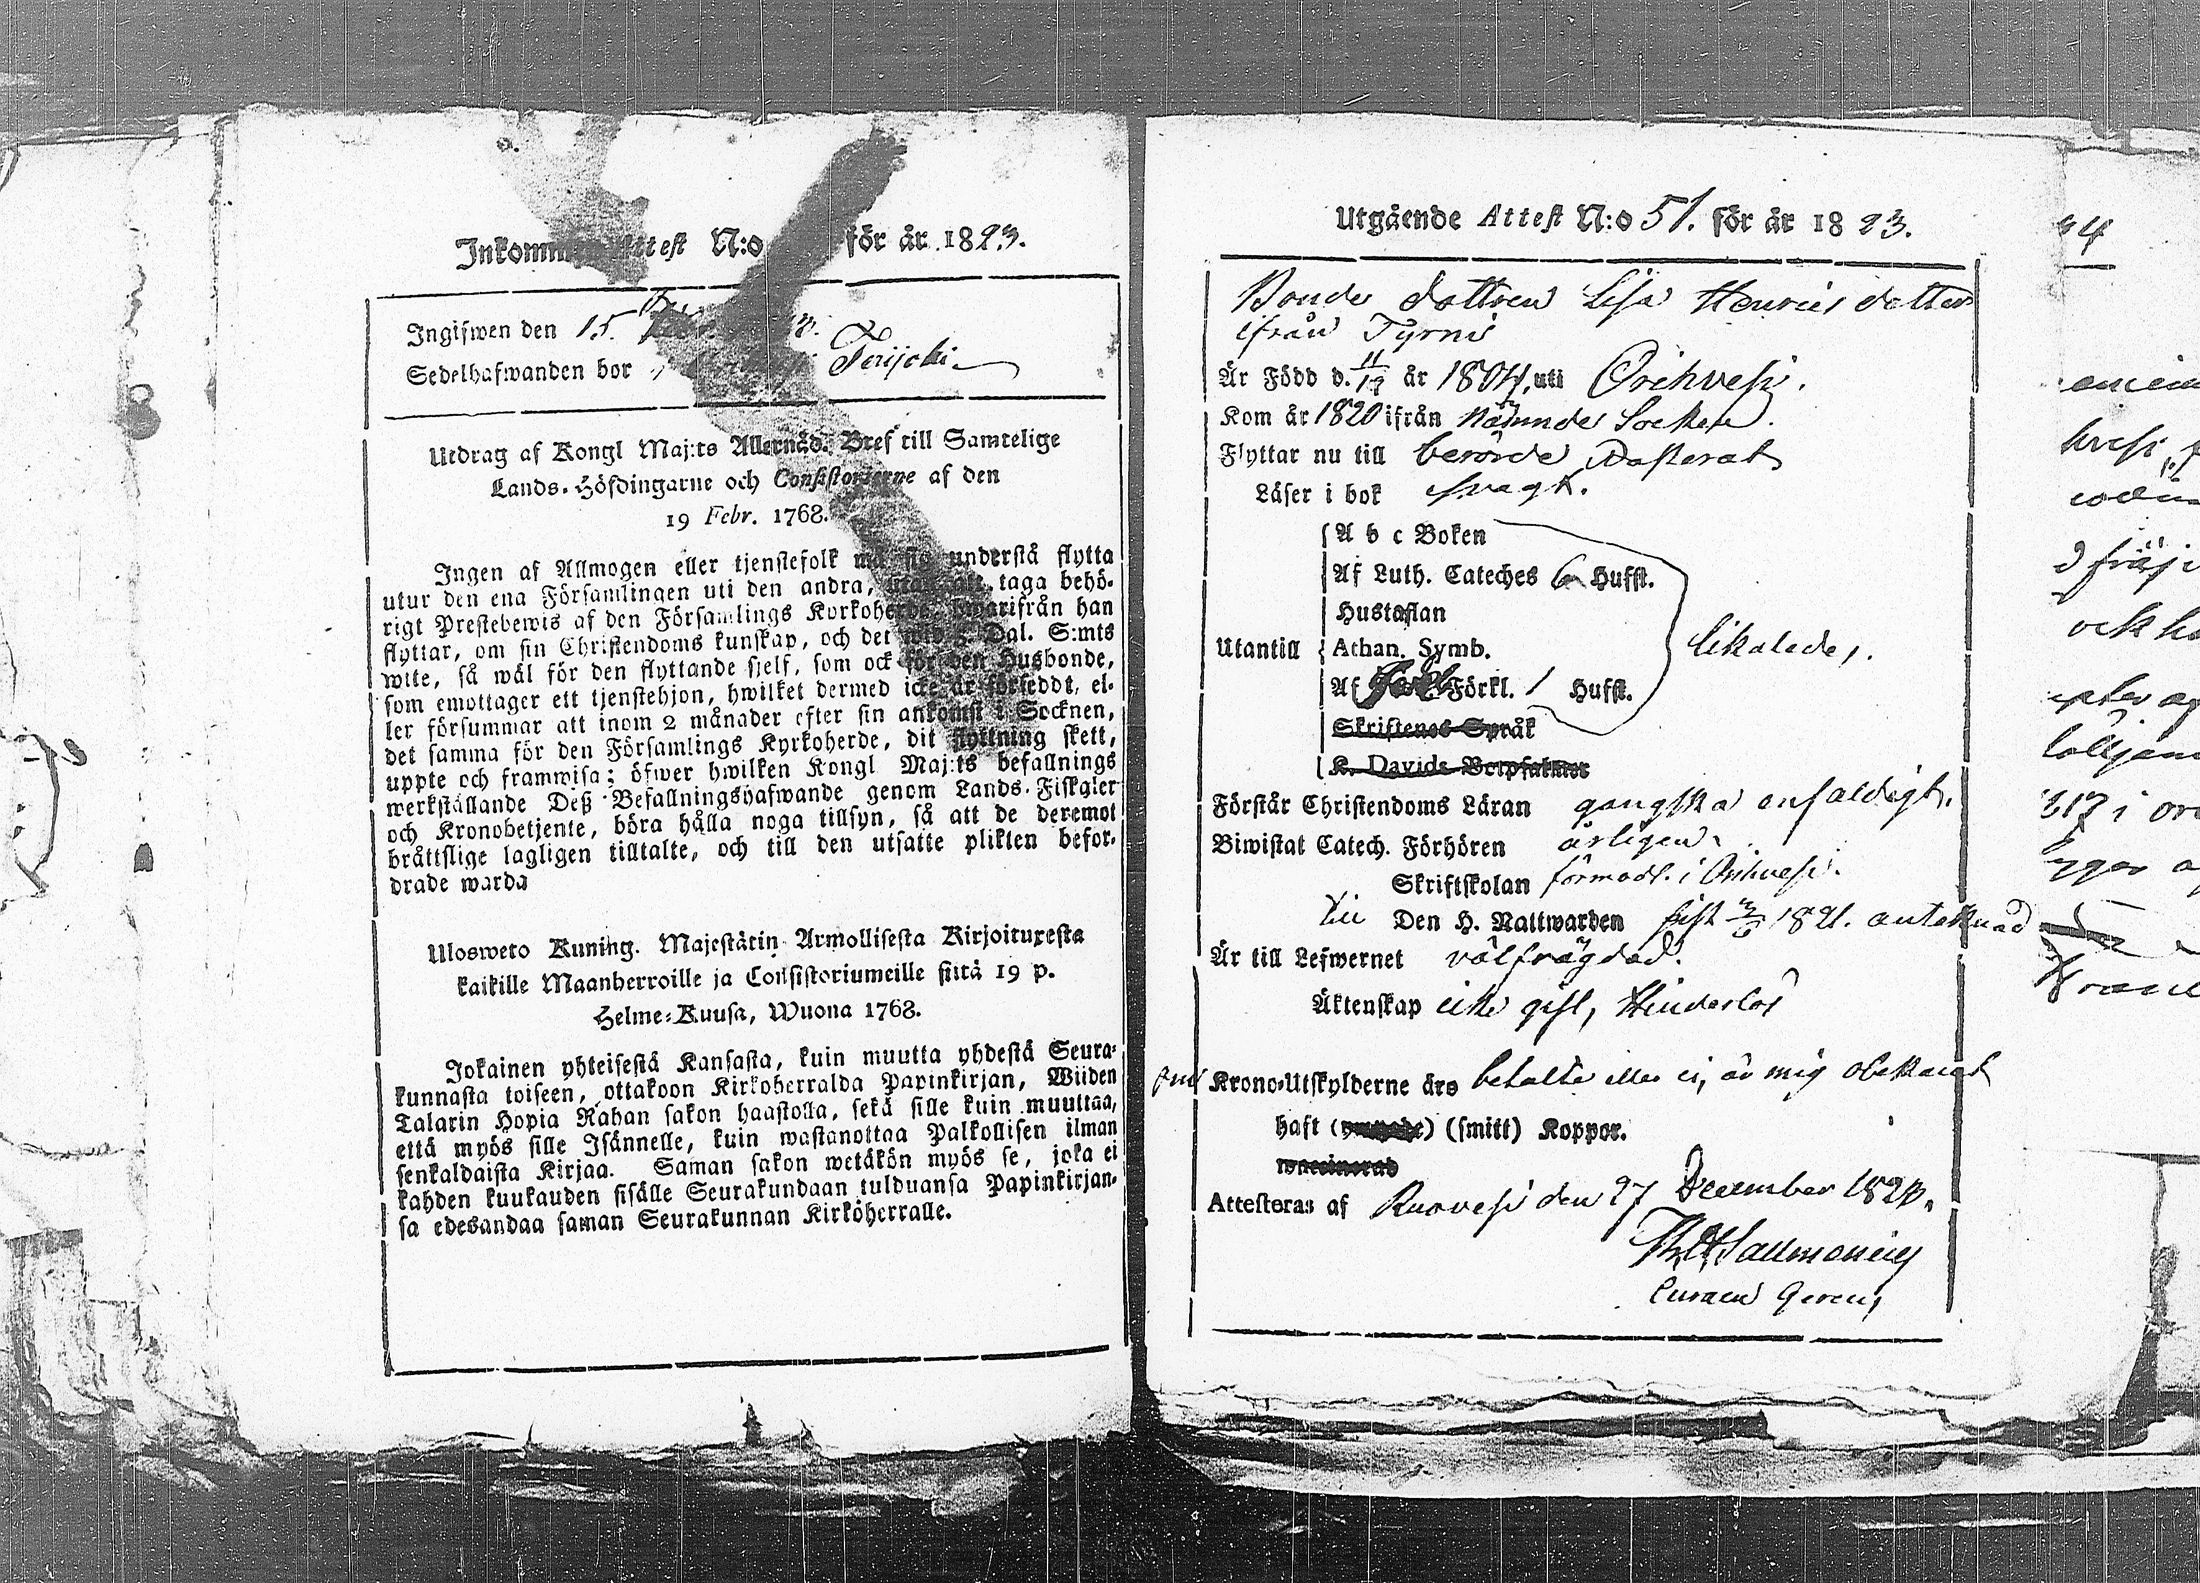 Inkomm Attest N:o för år 1823.
Ingifwen den 15.
Sedelhafwanden bor Terijoki
Utdrag af Kongl Maj:ts Allernåd. Bref till Samtelige
Lands-Höfdingarne och Consistorierne af den
19 Febr. 1768.
Ingen af Allmogen eller tjenstefolk må sig understå flytta
utur den ena Församlingen uti den andra, utan att taga behö-
rigt Prestebewis af den Församlings Kyrkoherde, hwarifrån han
flyttar, om sin Christendoms kunskap, och det wid 5 Dal. S:mts
wite, så wäl för den flyttande sjelf, som ock för den Husbonde,
som emottager ett tjenstehjon, hwilket dermed icke är försedt, el-
ler försummar att inom 2 månader efter sin ankomst i Socknen,
det samma för den Församlings Kyrkoherde, dit flyttning skett,
uppte och framwisa; öfwer hwilken Kongl Maj:ts befallnings
werkställande Deß Befallningshafwande genom Lands-Fiskaler
och Kronobetjente, böra hålla noga tillsyn, så att de deremot
bråttslige lagligen tilltalte, och till den utsatte plikten befor-
drade warda
Ulosweto Kuning. Majestätin Armollisesta Kirjoituxesta
kaikille Maanherroille ja Consistoriumeille siitä 19 p.
Helme-Kuusa, Wuona 1768.
Jokainen yhteisestä Kansasta, kuin muutta yhdestä Seura-
kunnasta toiseen, ottakoon Kirkoherralda Papinkirjan, Wiiden
Talarin Hopia Rahan sakon haastolla, sekä sille kuin muuttaa,
että myös sille Isännelle, kuin wastanottaa Palkollisen ilman
senkaldaista Kirjaa. Saman sakon wetäkön myös se, joka ei
kahden kuukauden sisälle Seurakundaan tulduansa Papinkirjan-
sa edesandaa saman Seurakunnan Kirköherralle.
Utgående Attest N:o 51. för år 1823.
Bonde dottren Lisa Henrics dotter
ifrån Tyrni
Är Född d. 11/12 år 1804, uti Orihvesi.
Kom år 1820 ifrån nämnde Socken.
Flyttar nu till berörde Pastorat
Läser i bok svagt.
A b c Boken
Af Luth. Cateches 6 Hufst.
Hustaflan
Utantill Athan. Symb. likaledes.
Af Förkl. 1 Hufst.
Skriftenes Språk
K. Davids Botpsalmer
Förstår Christendoms Läran ganska enfaldigt.
Biwistat Catech. Förhören årligen
Skriftskolan förmodl. i Orihvesi.
Den H. Nattwarden sist 3/6 1821. antecknad
Är till Lefwernet välfrägdad.
Äktenskap icke gift, Hinderlös
Krono-Utskylderne äro betalte eller ei, är mig obekant
haft (ympade) (smitt) Koppor.
waccinerad
Attesteras af Ruovesi den 27 December 1823.
Salmonius
Curam Gerens
34